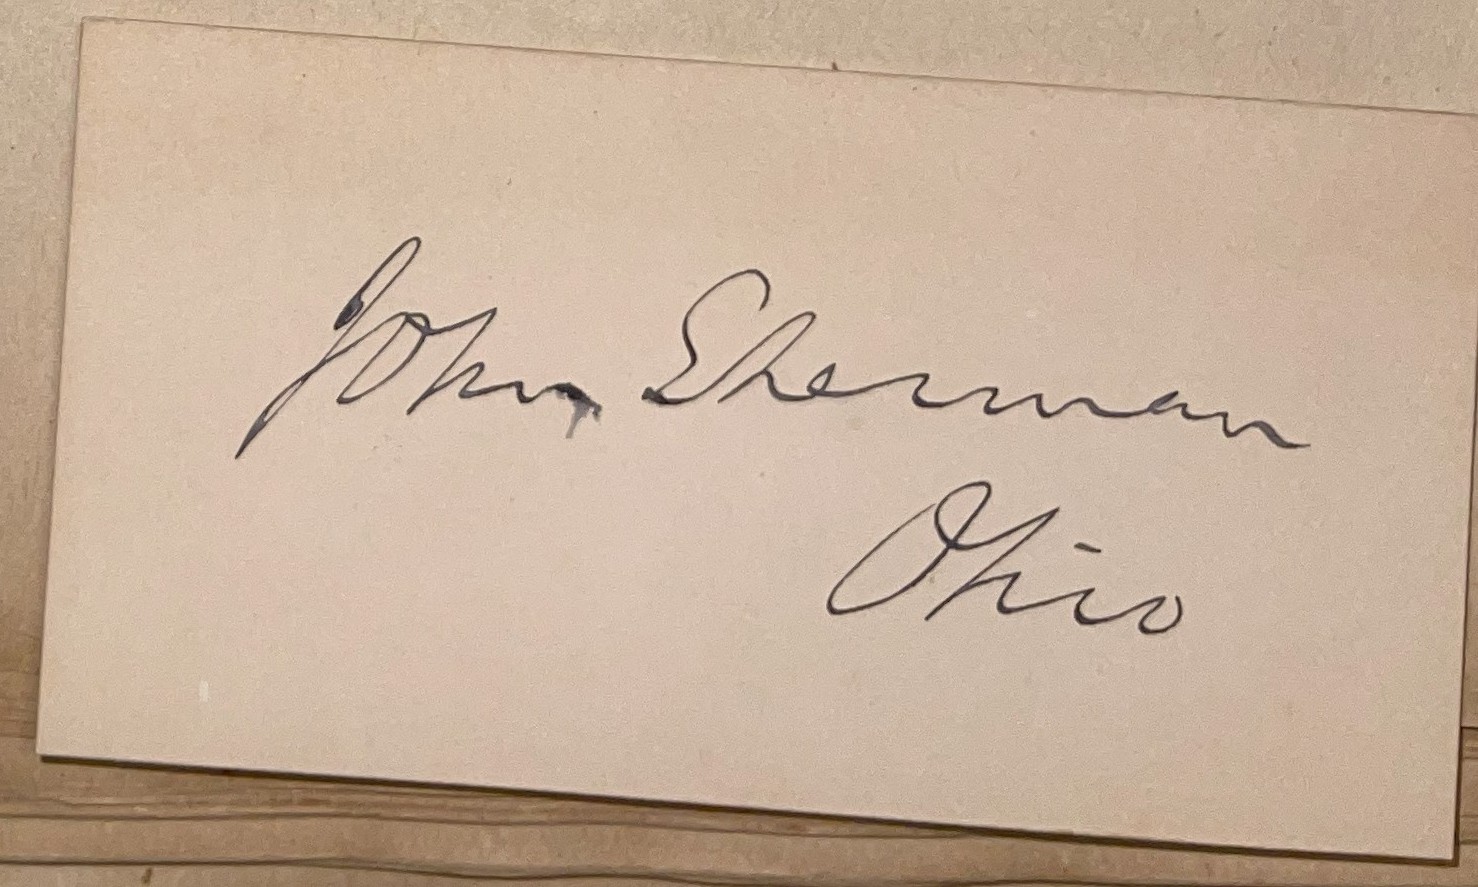 John Sherman
Ohio